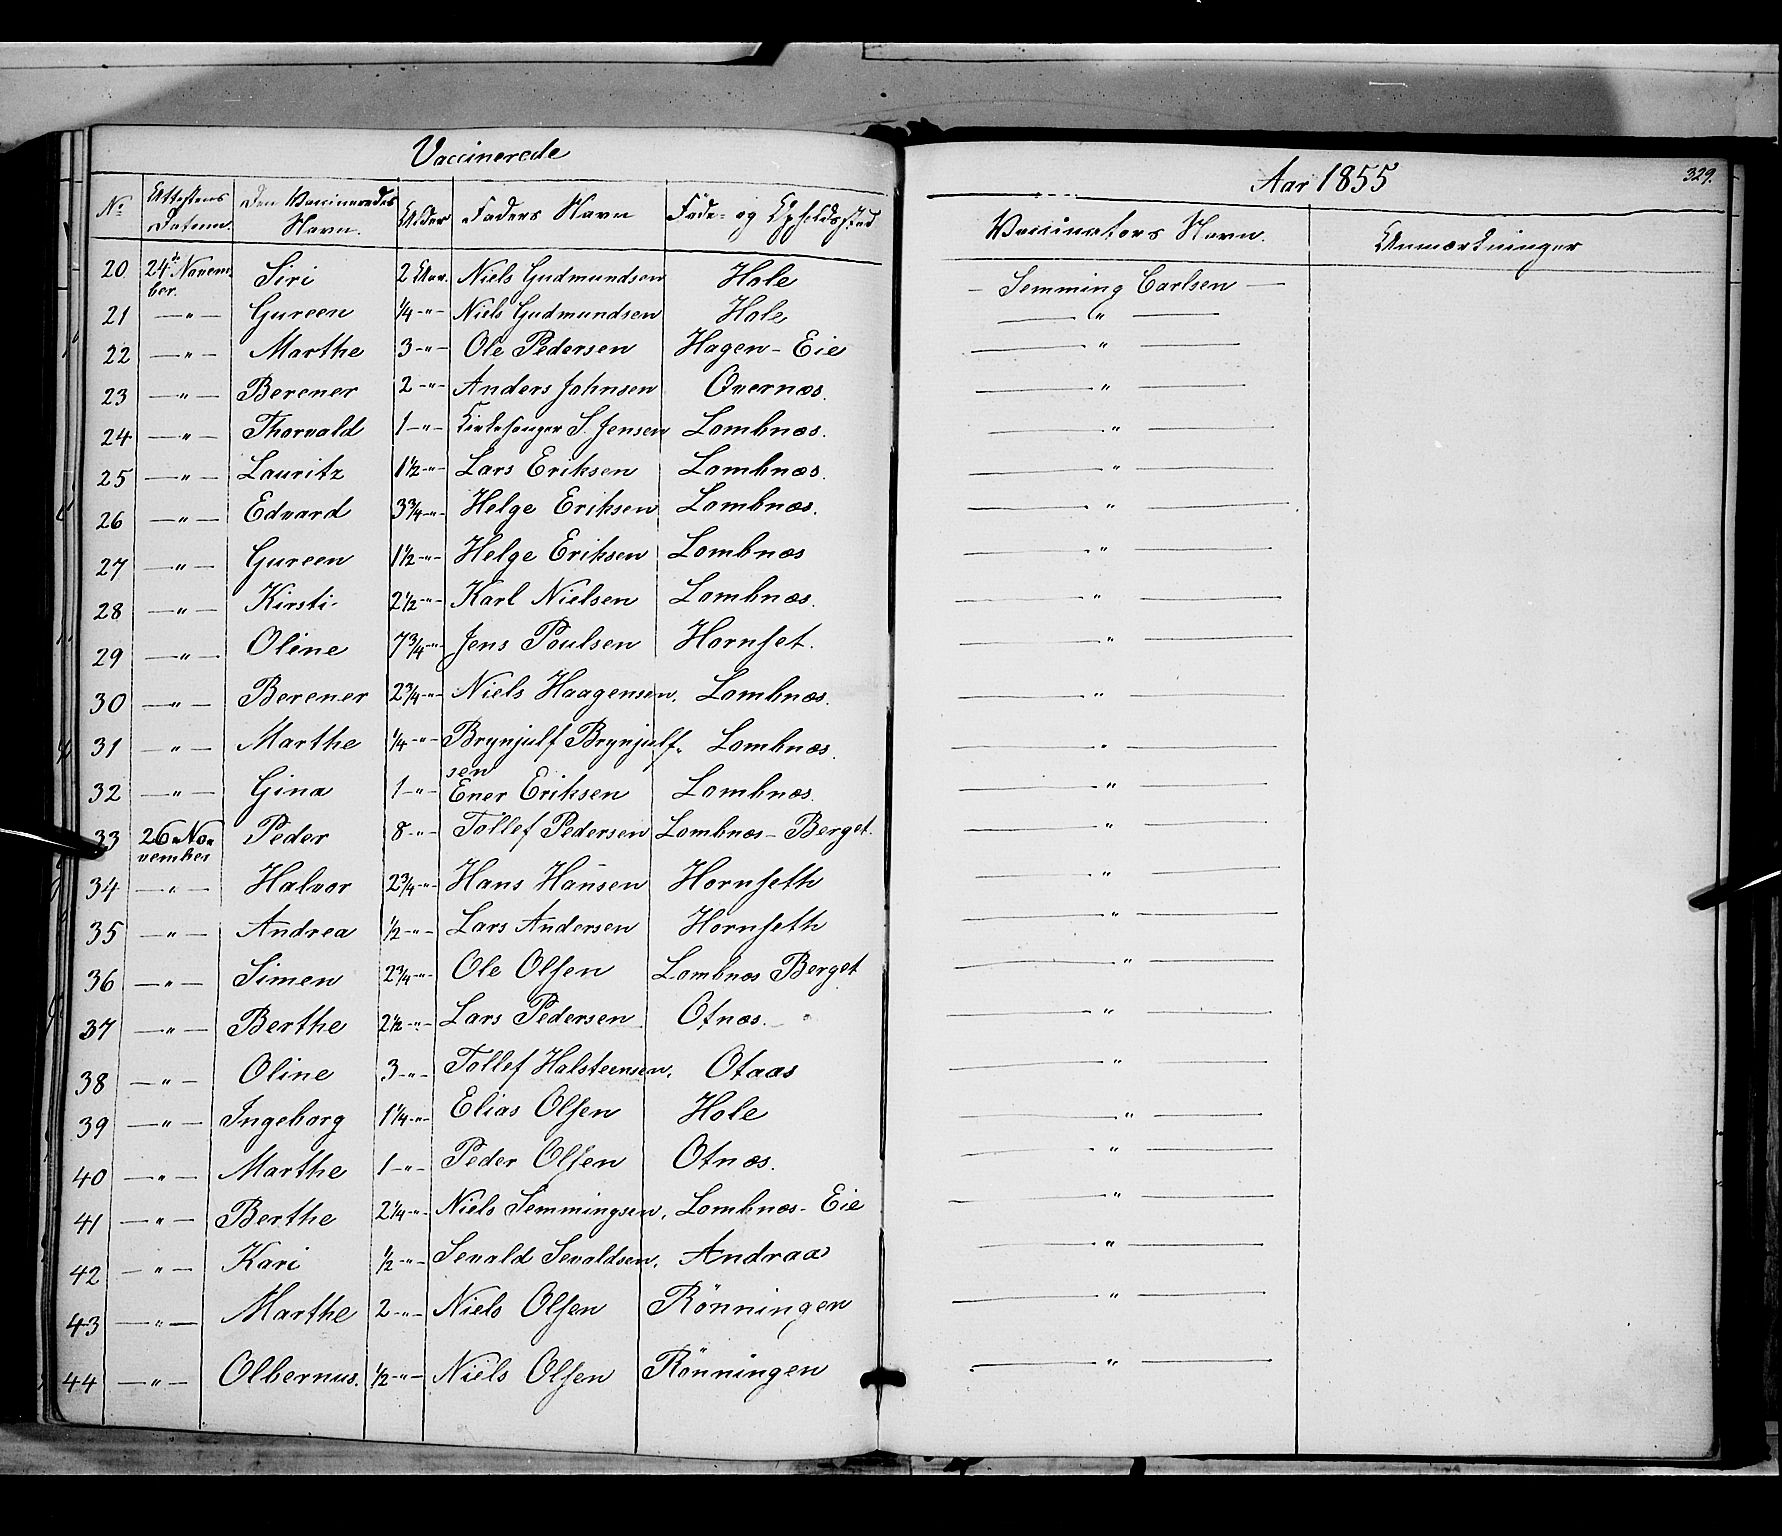 Vaccinerede
Aar 1855
329.
No Attestens Datum. Den Vaccineredes Navn. Alder Faders Navn Føde- og Opholdssted Vaccinators Navn. Anmærkninger
20 24de Novem- Siri 2 Aar. Niels Gudmundsen Hole — Semming Carlsen —
ber.
21 —"— Gureen ¼ -"- Niels Gudmundsen Hole — " —
22 —"— Marthe 3 -"- Ole Pedersen Hagen - Eie — " —
23 —"— Berener 2 -"- Anders Johnsen Overnæs. — " —
24 —"— Thorvald 1 -"- Kirkesanger S. Jensen Lombnæs. — " —
25 —"— Lauritz 1½ -"- Lars Eriksen Lombnæs. — " —
26 —"— Edvard 3¾ -"- Helge Eriksen Lombnæs. — " —
27 —"— Gureen 1½ -"- Helge Eriksen Lombnæs — " —
28 —"— Kirsti- 2½ -"- Karl Nielsen Lombnæs. — " —
29 —"— Oline 7¾ -"- Jens Poulsen Hornset. — " —
30 —"— Berener 2¾ -"- Niels Haagensen. Lombnæs. — " —
31 —"— Marthe ¼ -"- Brynjulf Brynjulf- Lombnæs. — " —
sen
32 —"— Gina 1 -"- Ener Eriksen Lombnæs. — " —
33 26. No- Peder 8 -"- Tollef Pedersen Lombnæs - Berget. — " —
vember
34 —"— Halvor 2¾ -"- Hans Hansen Hornseth — " —
35 —"— Andrea ½ -"- Lars Andersen Hornseth — " —
36 —"— Simen 2¾ -"- Ole Olsen Lombnæs Berget — " —
37 —"— Berthe 2½ -"- Lars Pedersen Otnæs. — " —
38 —"— Oline 3 -"- Tollef Halsteensen. Otaas — " —
39 —"— Ingeborg 1¼ -"- Elias Olsen Hole — " —
40 —"— Marthe 1 -"- Peder Olsen Otnæs. — " —
41 —"— Berthe 2¼ -"- Niels Semmingsen. Lombnæs - Eie — " —
42 —"— Kari ½ -"- Sevald Sevaldsen. Andraa — " —
43 —"— Marthe 2 -"- Niels Olsen Rönningen — " —
44 —"— Olbernus. ½ -"- Niels Olsen Rönningen — " —